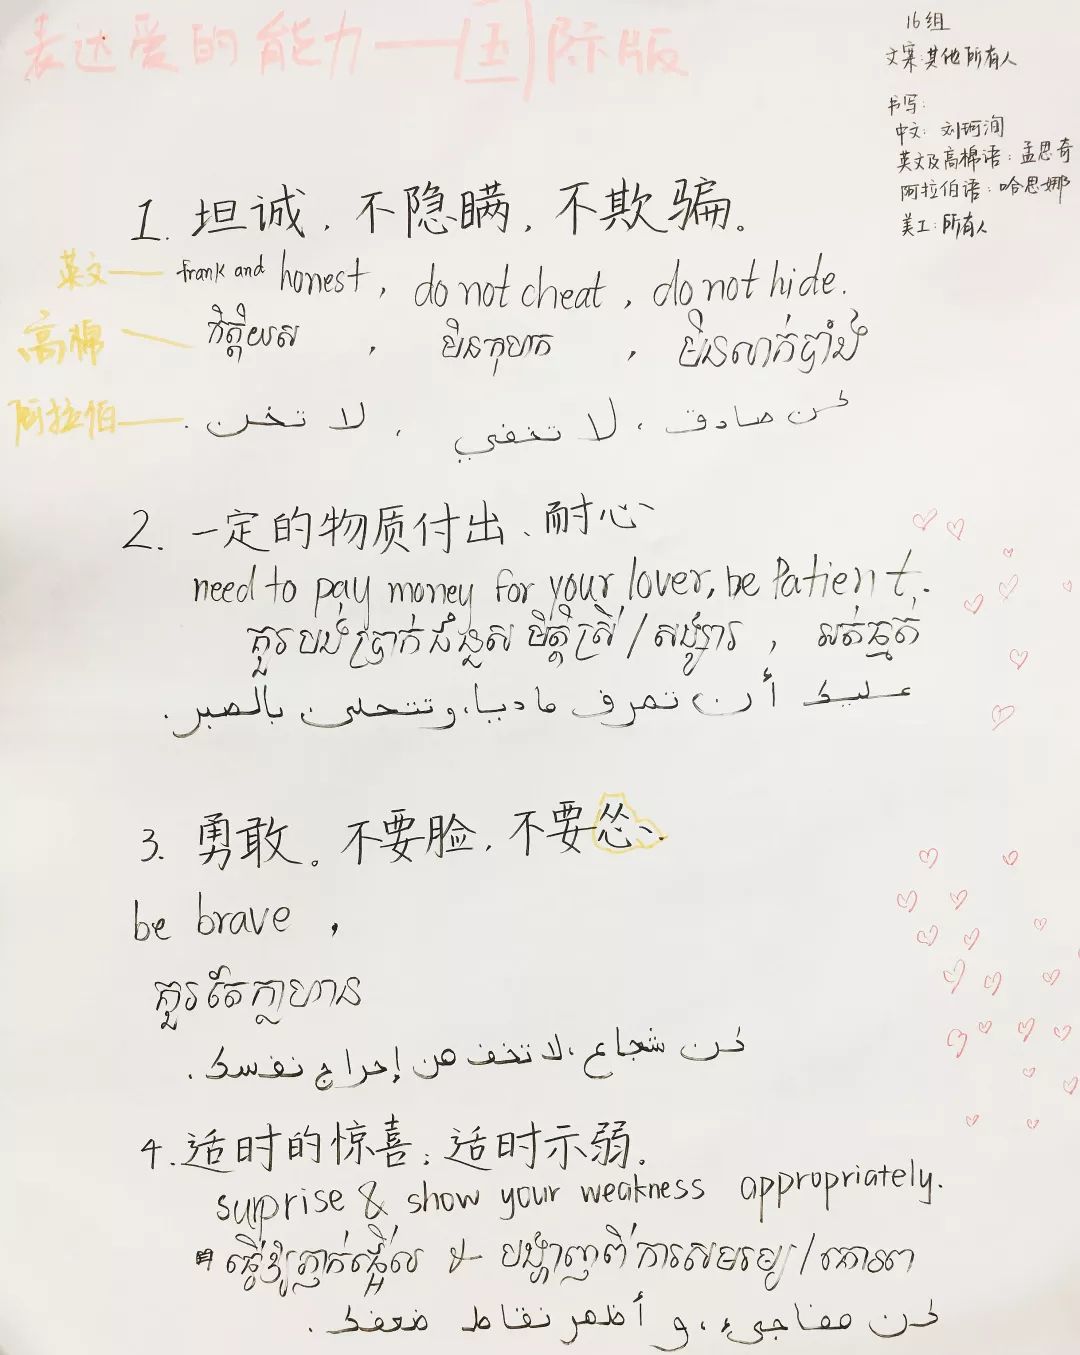 表达爱的能力——国际版
16组
文案:其他所有人
书写:
中文: 刘珂洵
英文及高棉语: 孟思奇
阿拉伯语: 哈思娜
美工: 所有人
1. 坦诚, 不隐瞒, 不欺骗。
英文—— frank and honest, do not cheat, do not hide.
高棉—— កិត្តិយស , មិនកុហក , មិនលាក់បាំង
阿拉伯—— كن صادق، لا تخفي، لا تخن.
2. 一定的物质付出、耐心
need to pay money for your lover, be Patient.
គួរបង់ប្រាក់ជំនួសមិត្តស្រី/សង្សារ , អត់ធ្មត់
عليك أن تصرف ماديا، وتتحلى بالصبر.
3. 勇敢。不要脸, 不要怂.
be brave ,
គួរតែក្លាហាន
كن شجاع، لا تخف من إحراج نفسك.
4. 适时的惊喜; 适时示弱.
surprise & show your weakness appropriately.
ធ្វើឱ្យភ្ញាក់ផ្អើល & បង្ហាញពីការសមរម្យ/គោរព
كن مفاجيء، و أظهر نقاط ضعفك.